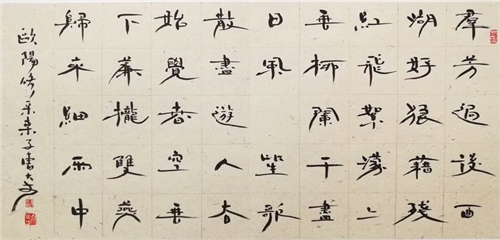 群芳過後西
湖好狼藉殘
紅飛絮濛々
垂柳闌干盡
日風笙歌
散盡遊人去
始覺春空垂
下簾櫳雙燕
歸來細雨中
歐陽修采桑子